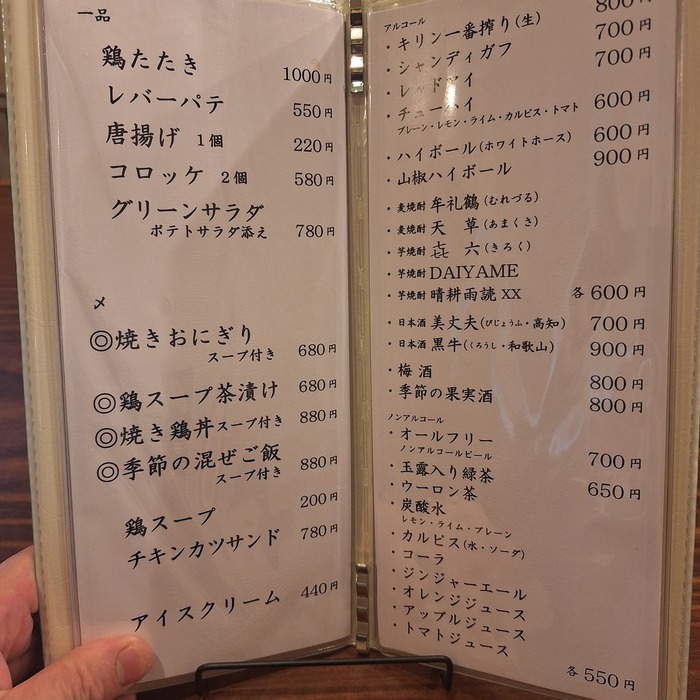 一品
鶏たたき 1000円
レバーパテ 550円
唐揚げ 1個 220円
コロッケ 2個 580円
グリーンサラダ
ポテトサラダ添え 780円
〆
◎焼きおにぎり
スープ付き 680円
◎鶏スープ茶漬け 680円
◎焼き鶏丼スープ付き 880円
◎季節の混ぜご飯
スープ付き 880円
鶏スープ 200円
チキンカツサンド 780円
アイスクリーム 440円
アルコール
・キリン一番搾り(生) 800円
・シャンディガフ 700円
・レッドアイ 700円
・チューハイ
プレーン・レモン・ライム・カルピス・トマト 600円
・ハイボール(ホワイトホース) 600円
・山椒ハイボール 900円
・麦焼酎 牟礼鶴(むれづる)
・麦焼酎 天 草(あまくさ)
・芋焼酎 㐂 六(きろく)
・芋焼酎 DAIYAME
・芋焼酎 晴耕雨読 XX 各600円
・日本酒 美丈夫(びじょうふ・高知) 700円
・日本酒 黒牛(くろうし・和歌山) 900円
・梅酒 800円
・季節の果実酒 800円
ノンアルコール
・オールフリー
ノンアルコールビール 700円
・玉露入り緑茶 650円
・ウーロン茶
・炭酸水
レモン・ライム・プレーン
・カルピス(水・ソーダ)
・コーラ
・ジンジャーエール
・オレンジジュース
・アップルジュース
・トマトジュース 各550円